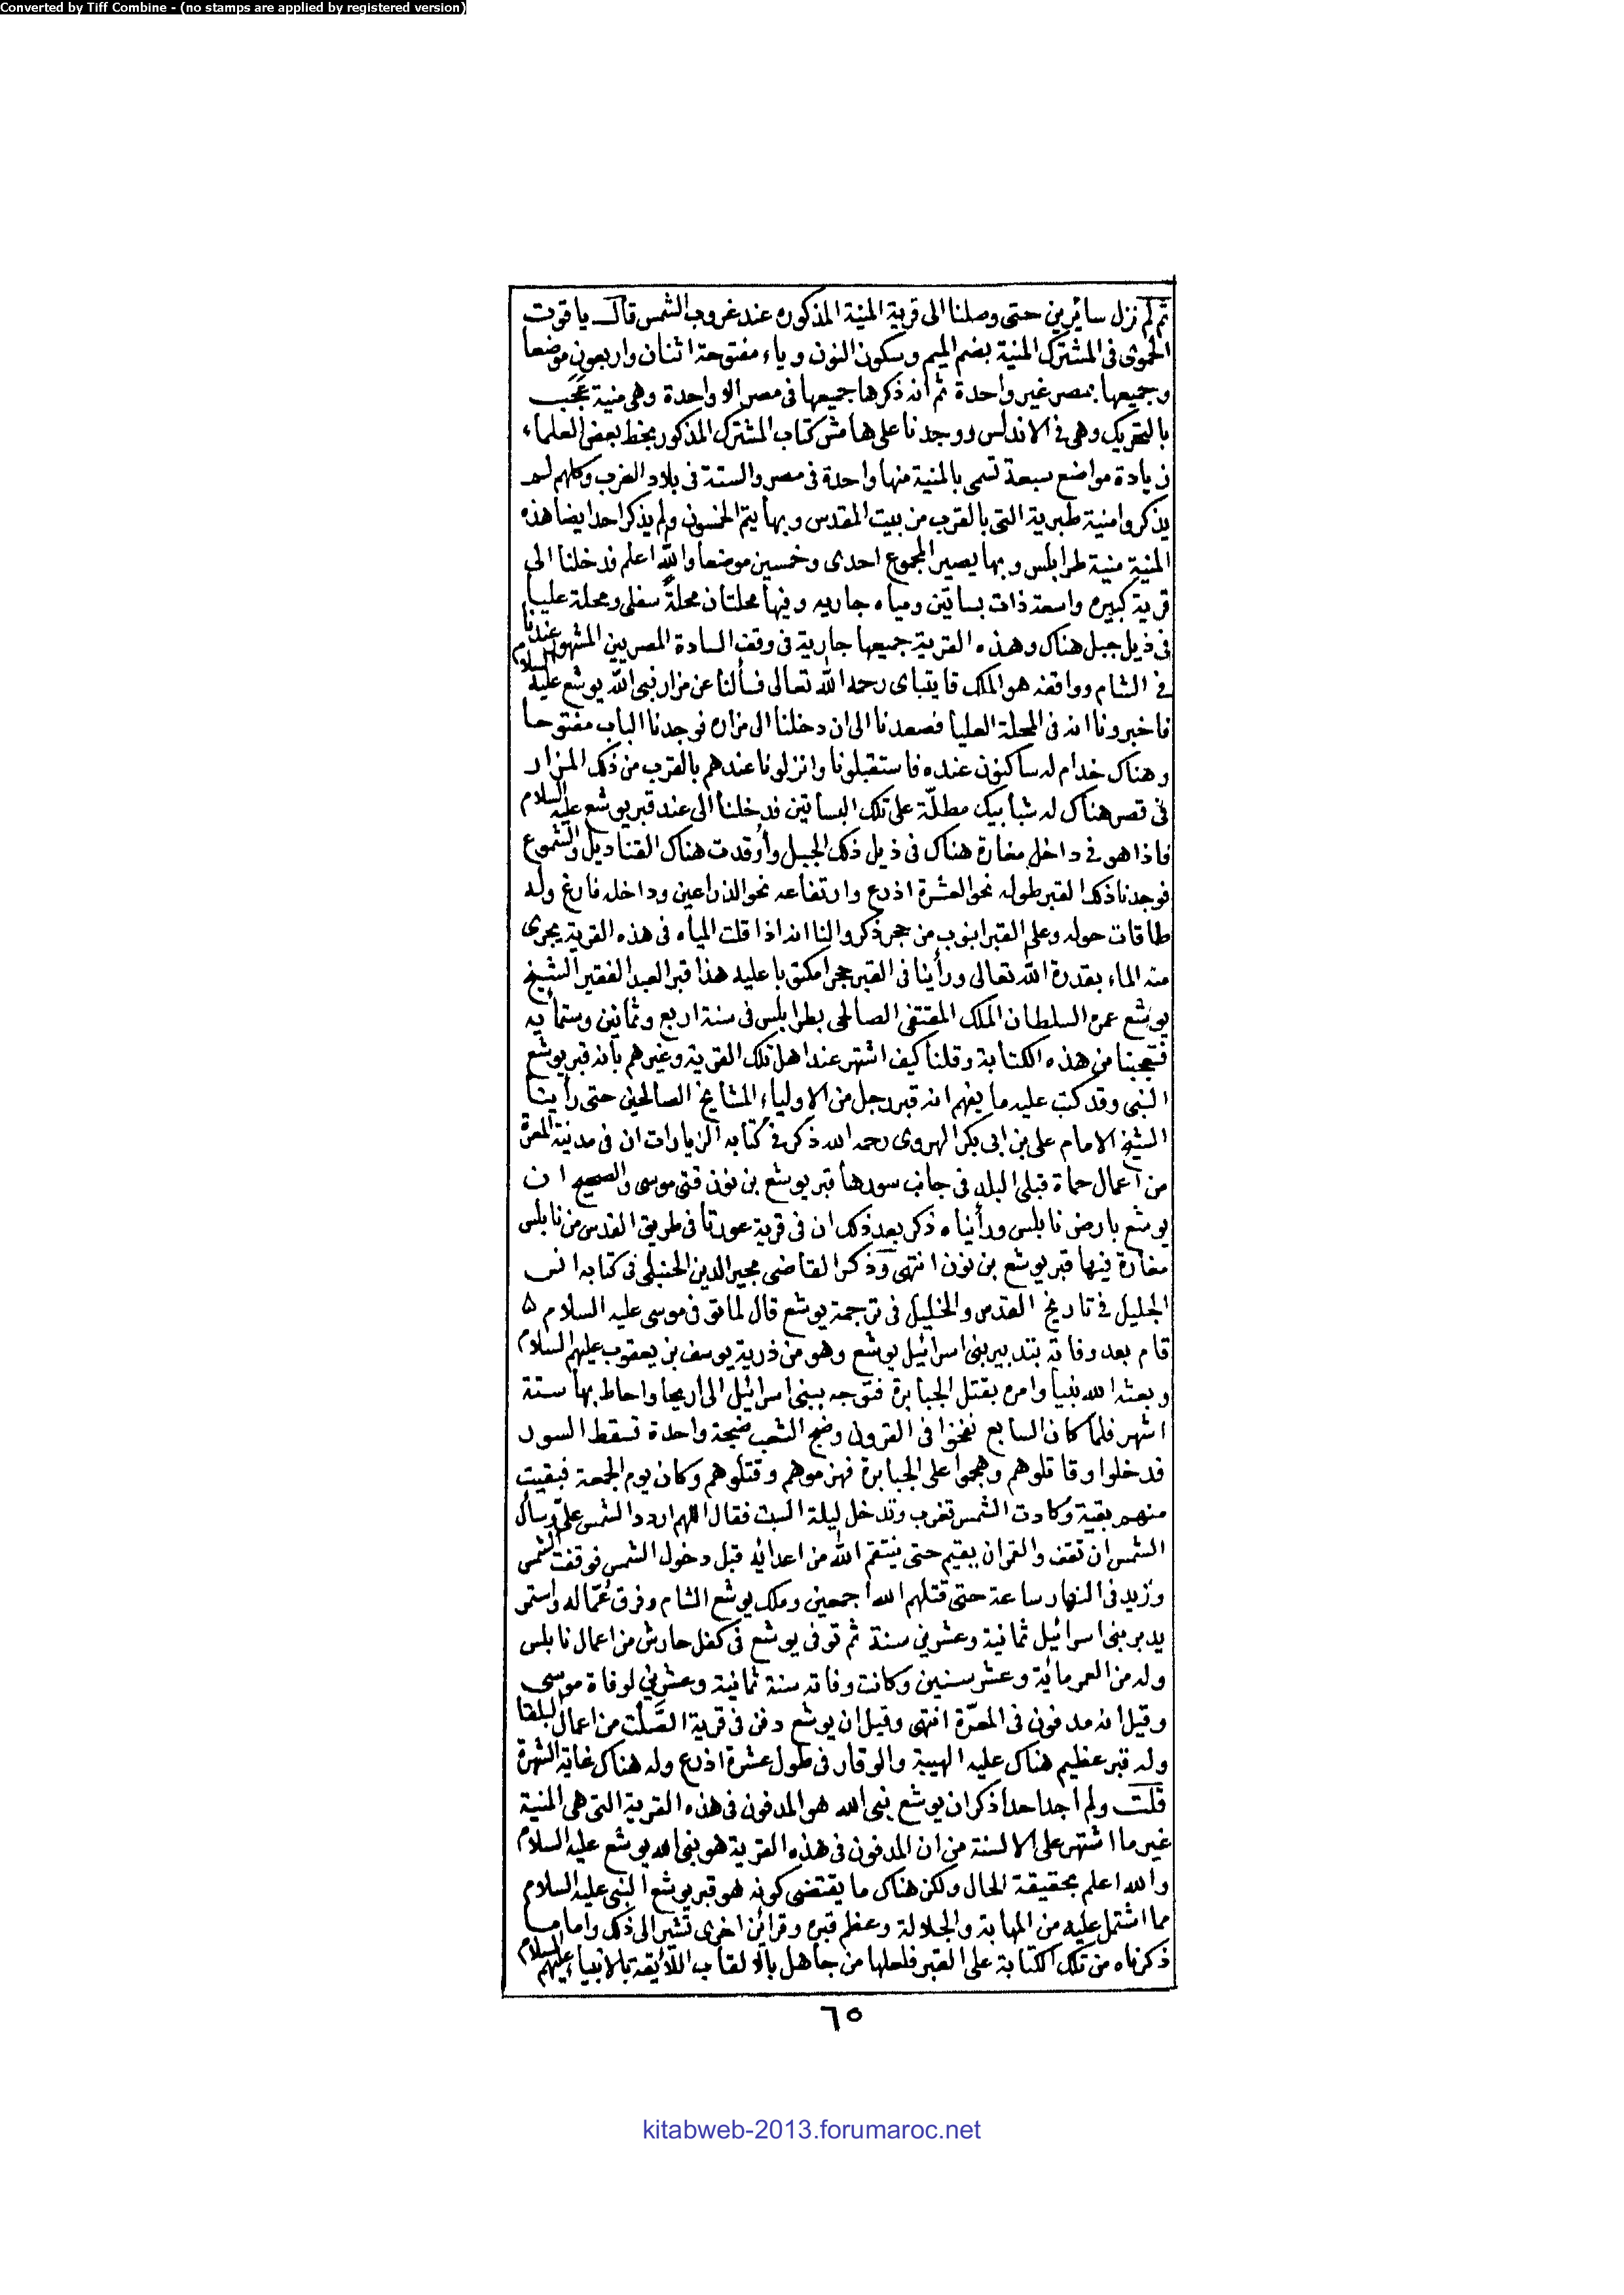 Converted by Tiff Combine - (no stamps are applied by registered version)
ثم لم نزل سائرين حتى وصلنا الى قرية المنية المذكوره عند غروب الشمس قال ياقوت
الحموى فى المشترك المنية بضم الميم وسكون النون وياء مفتوحة اثنان واربعون موضعا
وجميعها بمصر غير واحدة ثم انه ذكرها جميعها فى مصر الا واحدة وهى منية عجب
بالتحريك وهى فى الاندلس ووجدنا على هامش كتاب المشترك المذكور بخط بعض العلماء
زيادة مواضع سبعة تسمى بالمنية منها واحدة فى مصر والستة فى بلاد الغرب وكلهم لم
يذكروا منية طبرية التى بالقرب من بيت المقدس وبها يتم الخمسون ولم يذكر احد ايضا هذه
المنية منية طرابلس وبها يصير المجموع احدى وخمسين موضعا والله اعلم فدخلنا الى
قرية كبيره واسعة ذات بساتين ومياه جاريه وفيها محلتان محلة سفلى ومحلة عليا
فى ذيل جبل هناك وهذه القرية جميعها جارية فى وقف السادة المصريين المشهور عندنا
فى الشام وواقفه هو الملك قايتباى رحمه الله تعالى فسألنا عن مزار نبى الله يوشع عليه السلام
فاخبرونا انه فى المحلة العليا فصعدنا الى ان دخلنا الى مزاره فوجدنا الباب مفتوحا
وهناك خدام له ساكنون عنده فاستقبلونا وانزلونا عندهم بالقرب من ذلك المزار
فى قصر هناك له شبابيك مطلّة على تلك البساتين فدخلنا الى عند قبر يوشع عليه السلام
فاذا هو فى داخل مغارة هناك فى ذيل ذلك الجبل وأوقدت هناك القناديل والشموع
فوجدنا ذلك القبر طوله نحو العشرة اذرع وارتفاعه نحو الذراعين وداخله فارغ وله
طاقات حوله وعلى القبر انبوب من حجر ذكروا لنا انه اذا قلت المياه فى هذه القرية يجرى
منه الماء بقدرة الله تعالى ورأينا فى القبر حجرا مكتوبا عليه هذا قبر العبد الفقير الشيخ
يوشع عمره السلطان الملك المقتفى الصالحى بطرابلس فى سنة اربع وثمانين وستمأيه
فتعجبنا من هذه الكتابة وقلنا كيف اشتهر عند اهل تلك القرية وغيرهم بانه قبر يوشع
النبى وقد كتب عليه ما يفهم انه قبر رجل من الاولياء المشايخ الصالحين حتى رأينا
الشيخ الامام على بن ابى بكر الهروى رحمه الله ذكر فى كتابه الزيارات ان فى مدينة المعرة
من اعمال حماة قبلى البلد فى جانب سورها قبر يوشع بن نون فتى موسى والصحيح ان
يوشع بارض نابلس ورأيناه ذكر بعد ذلك ان فى قرية عورتا فى طريق القدس من نابلس
مغارة فيها قبر يوشع بن نون انتهى وذكر القاضى مجير الدين الحنبلى فى كتابه انس
الجليل فى تاريخ القدس والخليل فى ترجمة يوشع قال لما توفى موسى عليه السلام
قام بعد وفاته بتدبير بنى اسرائيل يوشع وهو من ذرية يوسف بن يعقوب عليهم السلام
وبعثه الله نبيا وامره بقتل الجبابرة فتوجه ببنى اسرائيل الى اريحا واحاط بها ستة
اشهر فلما كان السابع نفخوا فى القرون وضج الشعب ضجة واحدة فسقط السور
فدخلوا وقاتلوهم وهجموا على الجبابرة فهزموهم وقتلوهم وكان يوم الجمعة فبقيت
منهم بقية وكادت الشمس تغرب وتدخل ليلة السبت فقال اللهم اردد الشمس علىّ وسأل
الشمس ان تقف والقمر ان يقيم حتى ينتقم الله من اعدائه قبل دخول الشمس فوقفت الشمس
وزيد فى النهار ساعة حتى قتلهم الله اجمعين وملك يوشع الشام وفرق عمّاله واستمر
يدبر بنى اسرائيل ثمانية وعشرين سنة ثم توفى يوشع فى كفل حارش من اعمال نابلس
وله من العمر مائة وعشر سنين وكانت وفاته سنة ثمانية وعشرين لوفاة موسى
وقيل انه مدفون فى المعرّة انتهى وقيل ان يوشع دفن فى قرية الصّلت من اعمال البلقا
وله قبر عظيم هناك عليه الهيبة والوقار فى طول عشرة اذرع وله هناك غاية الشهرة
قلت ولم اجد احدا ذكر ان يوشع نبى الله هو المدفون فى هذه القرية التى هى المنية
غير ما اشتهر على الالسنة من ان المدفون فى هذه القرية هو نبى الله يوشع عليه السلام
والله اعلم بحقيقة الحال ولكن هناك ما يقتضى كونه هو قبر يوشع النبى عليه السلام
مما اشتمل عليه من المهابة والجلالة وعظم قبره وقرائن اخرى تشير الى ذلك واما ما
ذكرناه من تلك الكتابة على القبر فلعلها من جاهل بالالقاب اللائقة بالانبياء عليهم السلام
٦٥
kitabweb-2013.forumaroc.net